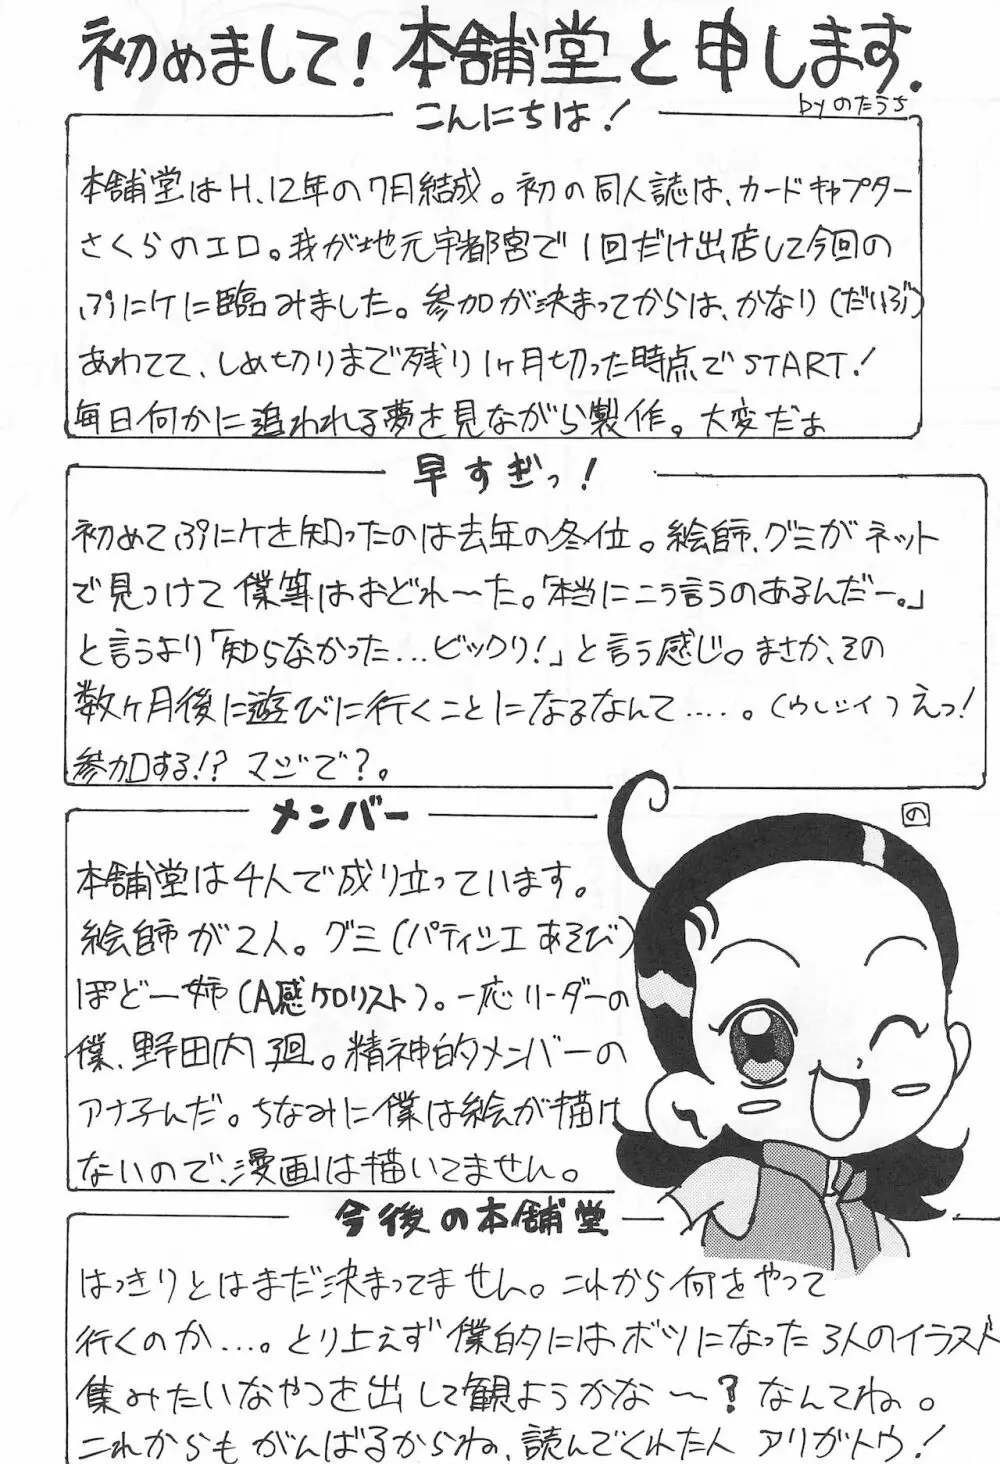 初めまして!本舗堂と申します.
byのたうち
こんにちは!
本舗堂はH.12年の7月結成。初の同人誌は、カードキャプター
さくらのエロ。我が地元宇都宮で1回だけ出店して今回の
ぷにケに臨みました。参加が決まってからは、かなり(だいぶ)
あわてて、しめ切りまで残り1ヶ月切った時点でSTART!
毎日何かに追われる夢を見ながら製作。大変だぁ
早すぎっ!
初めてぷにケを知ったのは去年の冬位。絵師、グミがネット
で見つけて僕等はおどれ〜た。「本当にこう言うのあるんだー。」
と言うより「知らなかった...ビックリ!」と言う感じ。まさか、その
数ヶ月後に遊びに行くことになるなんて.....。(ウレシイ)えっ!
参加する!?マジで?。
メンバー
の
本舗堂は4人で成り立っています。
絵師が2人。グミ(パティシエあそび)
ぽどー姉(A感ケロリスト)。一応リーダーの
僕、野田内廻。精神的メンバーの
アナ子んだ。ちなみに僕は絵が描け
ないので、漫画は描いてません。
今後の本舗堂
はっきりとはまだ決まってません。これから何をやって
行くのか...。とり上えず僕的にはボツになった3人のイラスト
集みたいなやつを出して観ようかな〜?なんてね。
これからもがんばるからね、読んでくれた人アリガトウ!